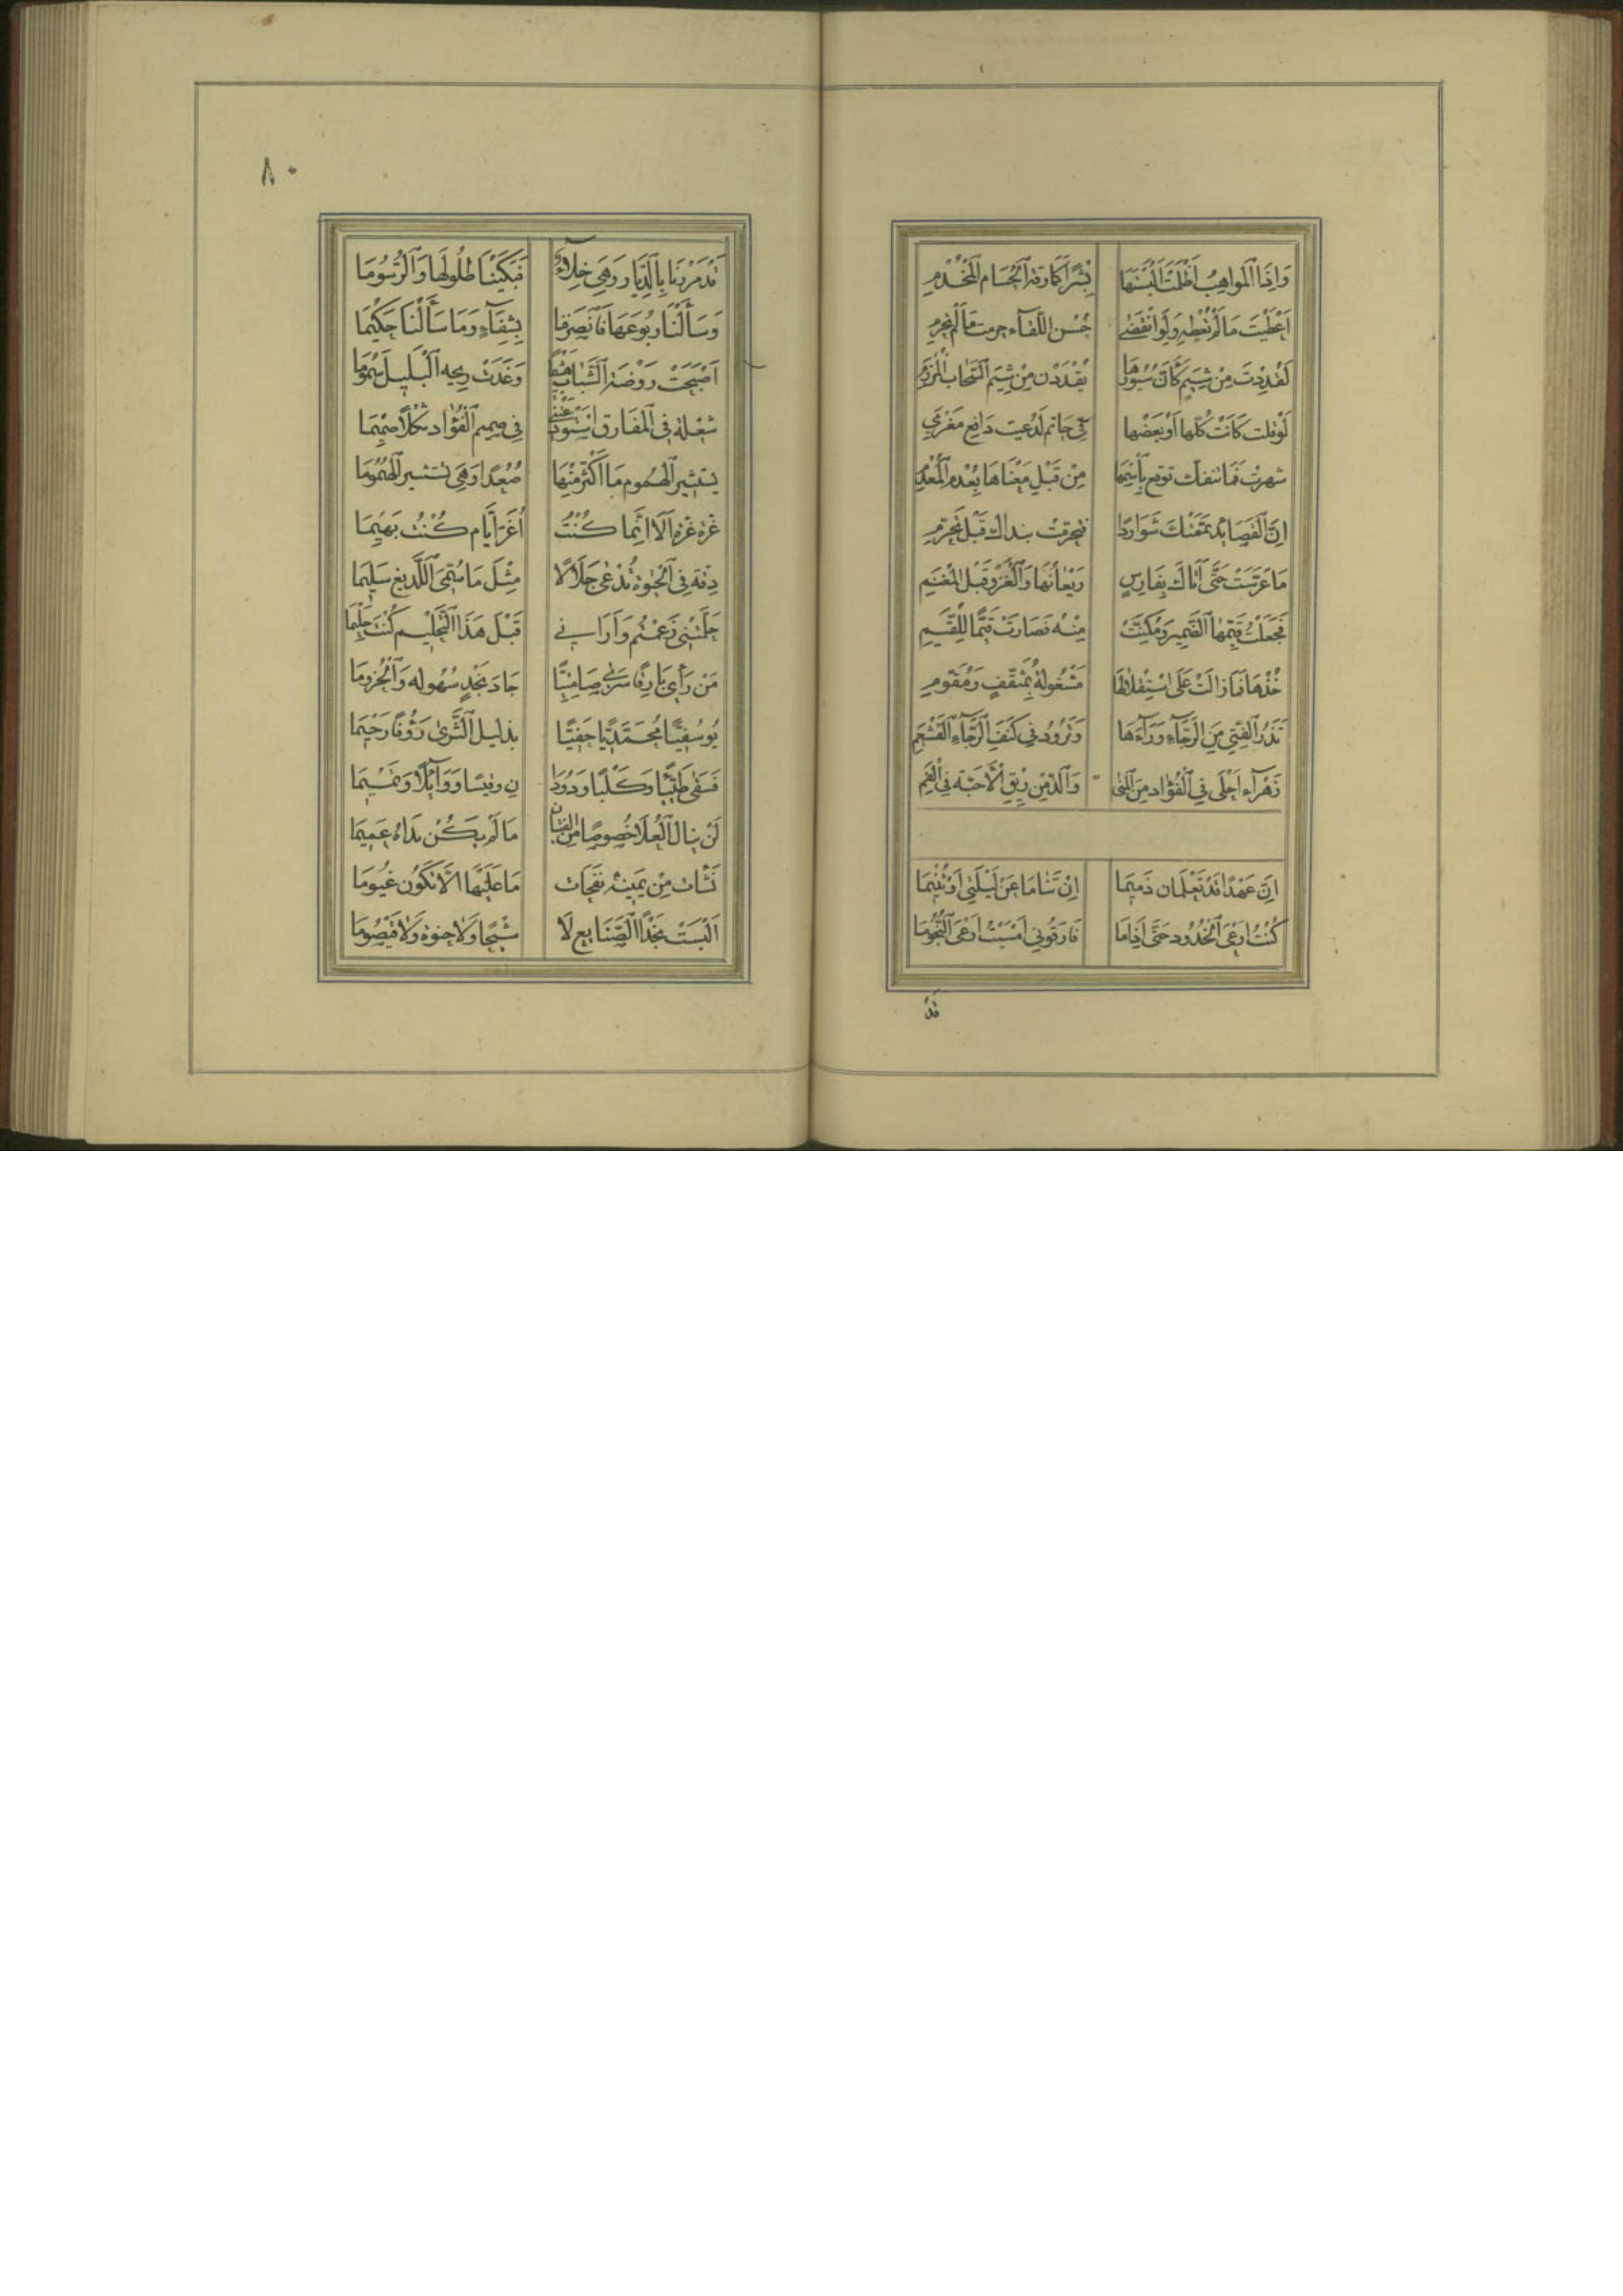 وَاِذَا المَواهِبُ اَظْلَمَتْ اَلْبَسْتَهَا بِشْرًا كَبَارِقَةِ اَلْحُسَامِ المِخْذَمِ
اَعْطَيْتَ مَا لَمْ تُعْطِهِ وَلَوِ انْقَضَى حُسْنُ اللِّقَاءِ حرمت مَا لَمْ تحرمِ
لَقُدِدْتَ مِنْ شِيَمٍ كَأَنَّ سُيُورَهَا يُقْدَدْنَ مِنْ شِيَمِ اَلسَّحَابِ المُرْزِمِ
لَوْ قلت كَانَتْ كُلّها اَوْ بَعْضها فِي حَاتم لَدُعيت دَافِع مَغْرَمِ
شهرتْ فَمَا تنفكّ توقع بِأسْمِهَا مِنْ قَبْلِ مَعْنَاهَا بِعُدْمِ المُعْدِمِ
اِنَّ اَلْقَصَايِد يَمَّمَتْكَ شَوَارِدًا فتحرمتْ بنداكَ قَبْلَ تَحَرُّمِ
مَا عَرَّسَتْ حَتَّى اَتَاكَ بِفَارِسٍ رَيْعَانُهَا وَاَلْغَزْو قَبْل المَغْنَمِ
فَجَعَلْتُ قَيِّمَهَا اَلضَّمِيرَ وَمُكِّنَتْ مِنْهُ فَصَارَتْ قَيِّمًا لِلْقَيِّمِ
خُذْهَا فَمَا زَالَتْ عَلَى اسْتِقْلَالِهَا مَشْغُولَةً بِمُثَقِّفٍ وَمُقَوِّمِ
تَذَرُ اَلْفَتَى مِنَ الرَّجَآءِ وَرَآءَهَا وَتَرُودُ فِي كَنَفِ اَلرَّجَآءِ القَشْعَمِ
زَهْرَآء اَحْلَى فِي اَلْفُؤَادِ مِنَ المُنَى وَاَلَذّ مِنْ رِيقِ اْلأَحِبَّةِ فِي اَلْفَمِ
اِنَّ عَهْدًا قَدْ تَعْلَمَانِ ذَمِيمَا اِنْ تَنَامَا عَنْ لَيْلَتِي اَوْ تُنِيمَا
كُنْتُ اَرْعَى اَلْخُدُودَ حَتَّى اِذَا مَا فَارَقُونِي اَمْسَيْتُ اَرْعَى اَلنُّجُومَا
قَدْ
٨٠
قَدْ مَرَرْنَا بِاَلدِّيَارِ وَهِيَ خِلَاءٌ فَبَكَيْنَا طُلُولَهَا وَاَلرُّسُومَا
وَسَأَلْنَا رُبُوعَهَا فَانْصَرَفْنَا بِشِفَآءٍ وَمَا سَأَلْنَا حَكِيمَا
اَصْبَحَتْ رَوْضَةُ اَلشَّبَابِ هَشِيمًا وَغَدَتْ رِيحه اَلْبَلِيلُ سَمُومَا
شُعْلَة فِي المَفَارِقِ اسْتَوْدَعَتْنِي فِي صَمِيم اَلْفُؤَادِ ثُكْلًا صَمِيمَا
يستثير الهُمُوم مَا اكْتَنَّ مِنْهَا صُعُدًا وَهِيَ تستثير اَلْهُمُومَا
غُرَّة غُرَّة اَلَا اِنَّمَا كُنْتُ اُغَرّ اَيَّام كُنْتُ بَهِيمَا
دِقَّة فِي اَلْحَيٰوةِ تُدْعَى جَلَالًا مِثْلَ مَا سُمِّيَ اَللَّدِيغ سَلِيمَا
حَلَّمَتْنِي زَعَمْتُم وَاَرَانِي قَبْلَ هَذَا اَلتَّحْلِيم كُنْتُ حَلِيمَا
مَنْ رَأَى بَارِقًا سَرَى صَامِتِيًّا جَادَ نَجْدٍ سُهُوله وَاَلْحُزُومَا
يُوسُفِيًّا مُحَمَّدِيًّا حَفِيًّا بذليل اَلثَّرَى رَؤُفًا رَحِيمَا
فَسَقَى طَيِّئًا وَكَلْبًا وَدُودَا نِ وقَيْسًا وَوَآئِلًا وَتَمِيمَا
لَنْ يَنَالَ اَلْعُلَا خُصُوصًا مِنَ الفِتْيَان مَا لَمْ يَكُنْ نَدَاهُ عَمِيمَا
نَشَأَتْ مِنْ يَمِينِهِ نَفَحَات مَا عَلَيْهَا اَلَّا تَكُونَ غُيُومَا
اَلْبَسَتْ نَجْدًا الصَّنَايِع لَا شِيحًا وَلَا جَنْوَة وَلَا قَيْصُومَا